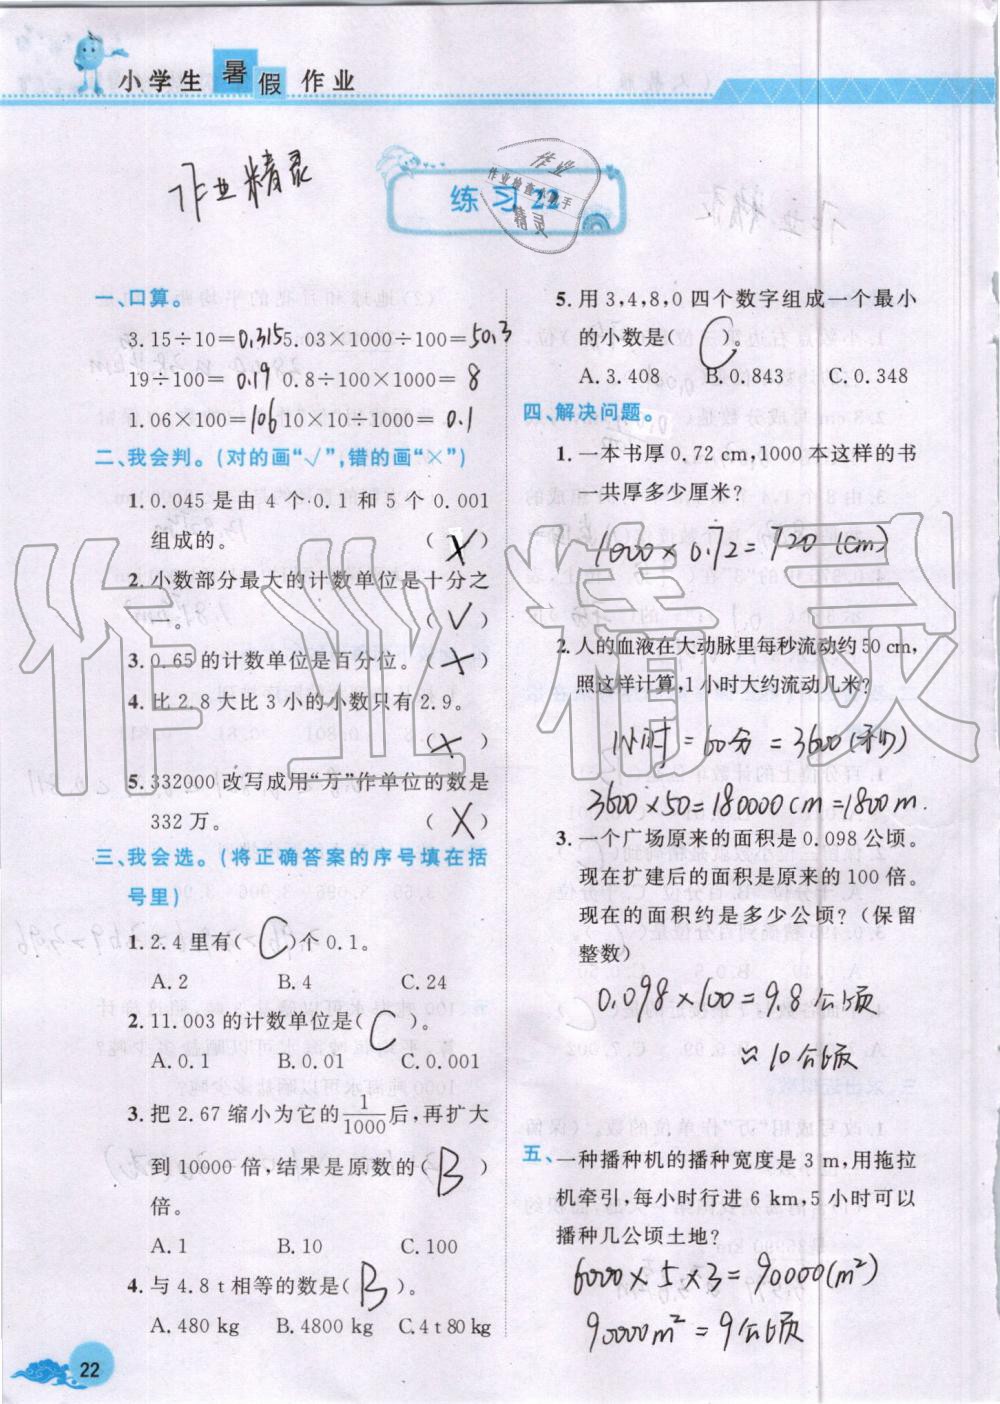 小学生暑假作业
作业精灵
练习22
作业
作业检查小助手
精灵
一、口算。
3.15÷10=0.315 5.03×1000÷100=50.3
19÷100= 0.19 0.8÷100×1000= 8
1.06×100=106 10×10÷1000= 0.1
二、我会判。(对的画“√”,错的画“×”)
1. 0.045是由4个0.1和5个0.001
组成的。 (×)
2. 小数部分最大的计数单位是十分之
一。 (√)
3. 0.65的计数单位是百分位。(×)
4. 比2.8大比3小的小数只有2.9。
(×)
5. 332000改写成用“万”作单位的数是
332万。 (×)
三、我会选。(将正确答案的序号填在括
号里)
1. 2.4里有( C )个0.1。
A. 2 B. 4 C. 24
2. 11.003的计数单位是( C )。
A. 0.1 B. 0.01 C. 0.001
3. 把2.67缩小为它的1/1000后,再扩大
到10000倍,结果是原数的( B )
倍。
A. 1 B. 10 C. 100
4. 与4.8t相等的数是( B )。
A. 480 kg B. 4800 kg C. 4 t 80 kg
5. 用3,4,8,0四个数字组成一个最小
的小数是( C )。
A. 3.408 B. 0.843 C. 0.348
四、解决问题。
1. 一本书厚0.72 cm,1000本这样的书
一共厚多少厘米?
1000×0.72=720(cm)
2. 人的血液在大动脉里每秒流动约50 cm,
照这样计算,1小时大约流动几米?
1小时=60分=3600(秒)
3600×50=180000cm=1800m.
3. 一个广场原来的面积是0.098公顷。
现在扩建后的面积是原来的100倍。
现在的面积约是多少公顷?(保留
整数)
0.098×100=9.8公顷
≈10公顷
五、一种播种机的播种宽度是3 m,用拖拉
机牵引,每小时行进6 km,5小时可以
播种几公顷土地?
6000×5×3=90000(m²)
90000m²=9公顷
作业精灵
22